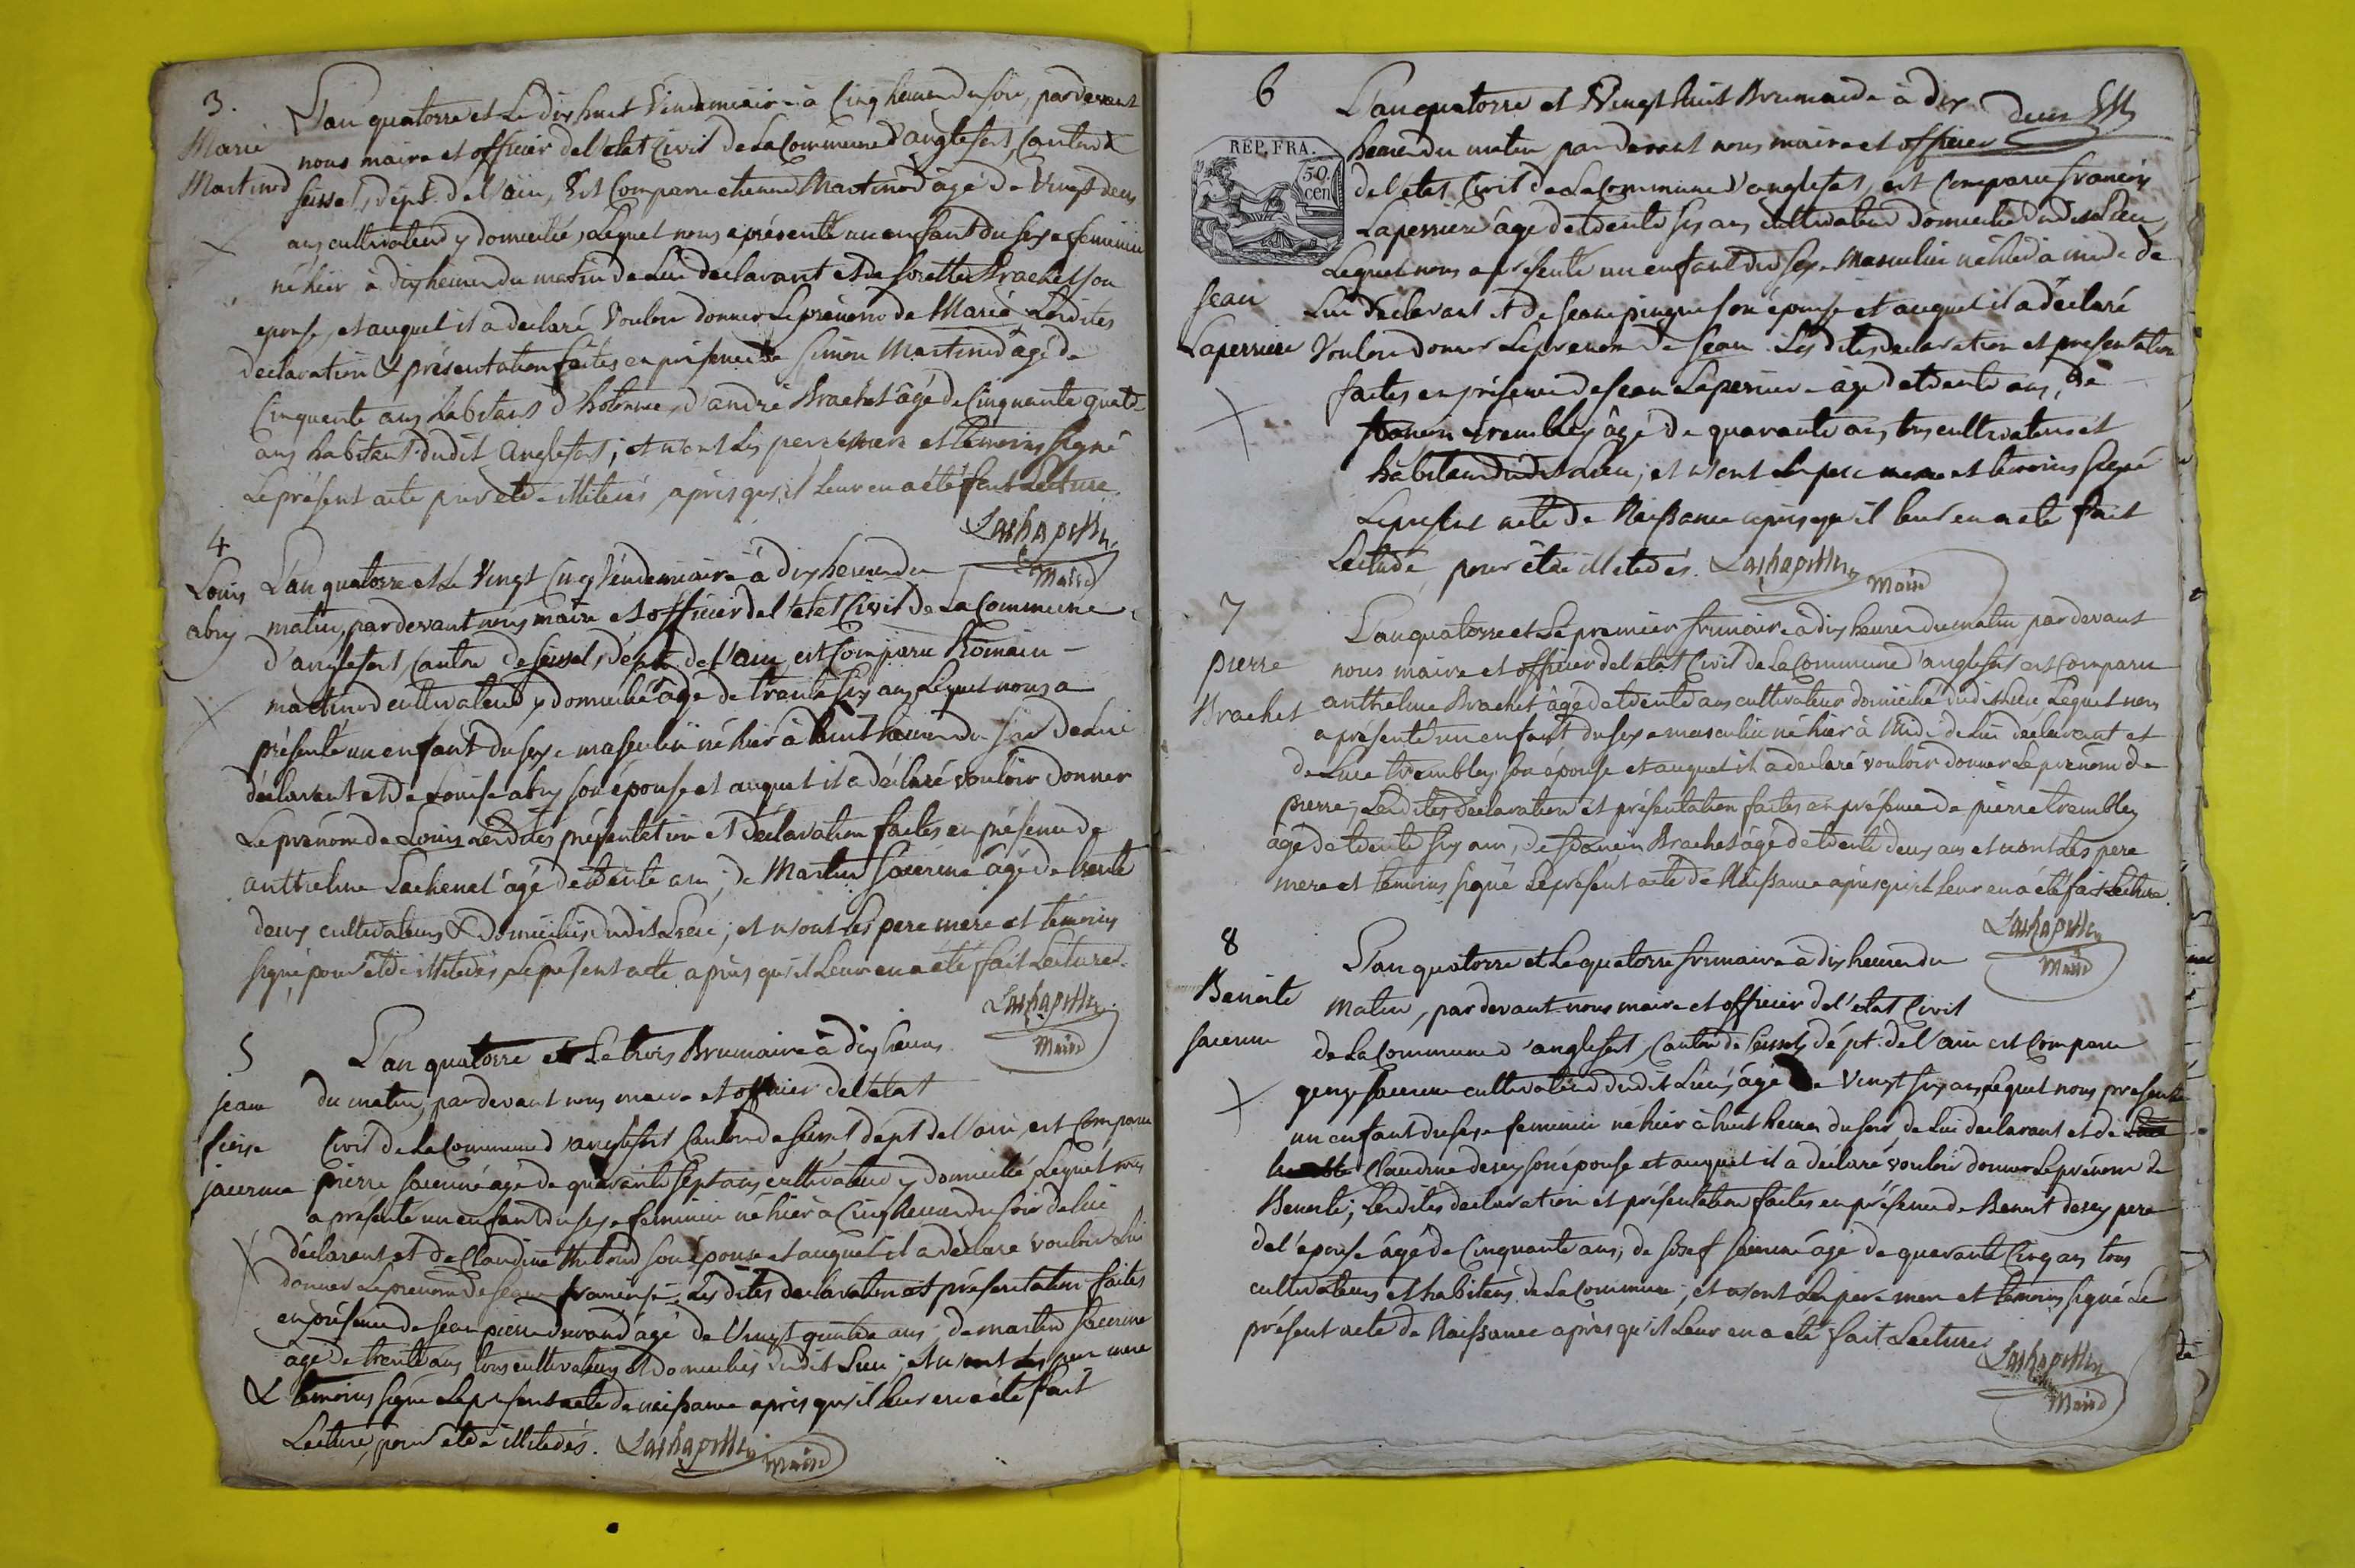 3.
Marie
Martinod
L'an quatorze et le dix huit Vindemiaire à Cinq heures du soir, pardevant
nous maire et officier de l'etat Civil de la Commune d'anglefort, Canton de
seissel, dépt. de l'ain, Est Comparu etienne Martinod âgé de Vingt deux
ans cultivateur y domicilié, lequel nous a présenté un enfant du sexe feminin
né hier à dix heures du matin de lui déclarant et de Brachet son
epouse, et auquel il a déclaré Vouloir donner le prénom de Marie Lesdites
declaration & présentation faites en présence de Simon Martinod âgé de
Cinquante ans habitant d'hotonne, d'andré Brachet âgé de Cinquante quatre
ans habitant dudit anglefort; et n'ont les pere mere et temoins signé
le présent acte pour etre illiterés, après qu'il leur en a été fait Lecture.
Lachapelle
Maire
4
Louis
abry
L'an quatorze et le Vingt Cinq Vendemiaire à dix heures du
matin, pardevant nous maire et officier de l'etat Civil de la Commune
d'anglefort, Canton de seissel, dépt. de l'ain, est Comparu Romain
martinod cultivateur y domicilié âgé de trente six ans lequel nous a
présenté un enfant du sexe masculin né hier à huit heures du soir de lui
déclarant et de Louise abry son épouse et auquel il a déclaré vouloir donner
le prénom de Louis Lesdites présentation et declaration faites en présence de
anthelme Lachenal âgé de trente ans; de Martin Jacerme âgé de trente
deux cultivateurs & domiciliés dudit Lieu; et n'ont les pere mere et témoins
signé, pour etre illiterés, le présent acte après qu'il leur en a été fait Lecture.
Lachapelle
Maire
5
jeane
jacerme
L'an quatorze et le trois Brumaire à dix heures
du matin, pardevant nous maire et officier de l'état
Civil de la Commune d'anglefort Canton de seissel, dépt de l'ain, est Comparu
pierre Jacerme âgé de quarante sept ans cultivateur y domicilié, lequel nous
a présenté un enfant du sexe feminin né hier à Cinq heures du soir de lui
déclarant et de Claudine son épouse et auquel il a déclaré vouloir lui
donner le prenom de Jeane françoise; Les dites declaration et présentation faites
en présence de Jean pierre Durand âgé de Vingt quatre ans, de martin Jacerme
âgé de trente ans tous cultivateurs et domiciliés dudit Lieu; et n'ont les pere mere
& temoins signé le présent acte de naissance après qu'il leur en a été fait
Lecture, pour etre illiterés. Lachapelle
Maire
6
deux
RÉP. FRA.
50
cen
Jean
Laperriere
L'an quatorze et Vingt huit Brumaire à dix
heures du matin pardevant nous maire et officier
de l'etat Civil de la Commune d'anglefort, est Comparu françois
Laperriere âgé de trente six ans cultivateur domicilié dudit Lieu,
Lequel nous a présenté un enfant du sexe Masculin né hier à midi de
Lui déclarant et de Jeane son épouse et auquel il a déclaré
Vouloir donner le prenom de Jean Les dites declaration et presentation
faites en présence de Jean Laperriere âgé de trente ans, de
trembley âgé de quarante ans, tous cultivateurs et
habitans dudit Lieu; et n'ont les pere mere et témoins signé
le présent acte de Naissance après qu'il leur en a été fait
Lecture, pour être illiterés. Lachapelle
Maire
7
pierre
Brachet
L'an quatorze et le premier frimaire à dix heures du matin pardevant
nous maire et officier de l'état Civil de la Commune d'anglefort est Comparu
anthelme Brachet âgé de trente ans cultivateur domicilié dudit Lieu, Lequel nous
a présenté un enfant du sexe masculin né hier à Midi de lui declarant et
de Luce trembley son épouse et auquel il a déclaré vouloir donner le prénom de
pierre; Lesdites Déclaration et présentation faites en présence de pierre trembley
âgé de trente six ans, de Brachet âgé de trente deux ans et n'ont les pere
mere et témoins signé le présent acte de Naissance après qu'il leur en a été fait Lecture.
Lachapelle
Maire
8
Benoite
jacerme
L'an quatorze et le quatorze frimaire à dix heures du
Matin, pardevant nous maire et officier de l'etat Civil
de la Commune d'anglefort, Canton de Seissel, dépt. de l'ain est Comparu
Jacerme cultivateur dudit Lieu, âgé de Vingt six ans, lequel nous présente
un enfant du sexe feminin né hier à huit heures du soir de lui declarant et de
Claudine desey son épouse et auquel il a déclaré vouloir donner le prénom de
Benoite; Lesdites declaration et présentation faites en présence de Benoit desey pere
de l'épouse âgé de Cinquante ans, de Josef Jacerme âgé de quarante Cinq ans tous
cultivateurs et habitans de la Commune; et n'ont les pere mere et temoins signé le
présent acte de Naissance après qu'il leur en a été fait Lecture
Lachapelle
Maire